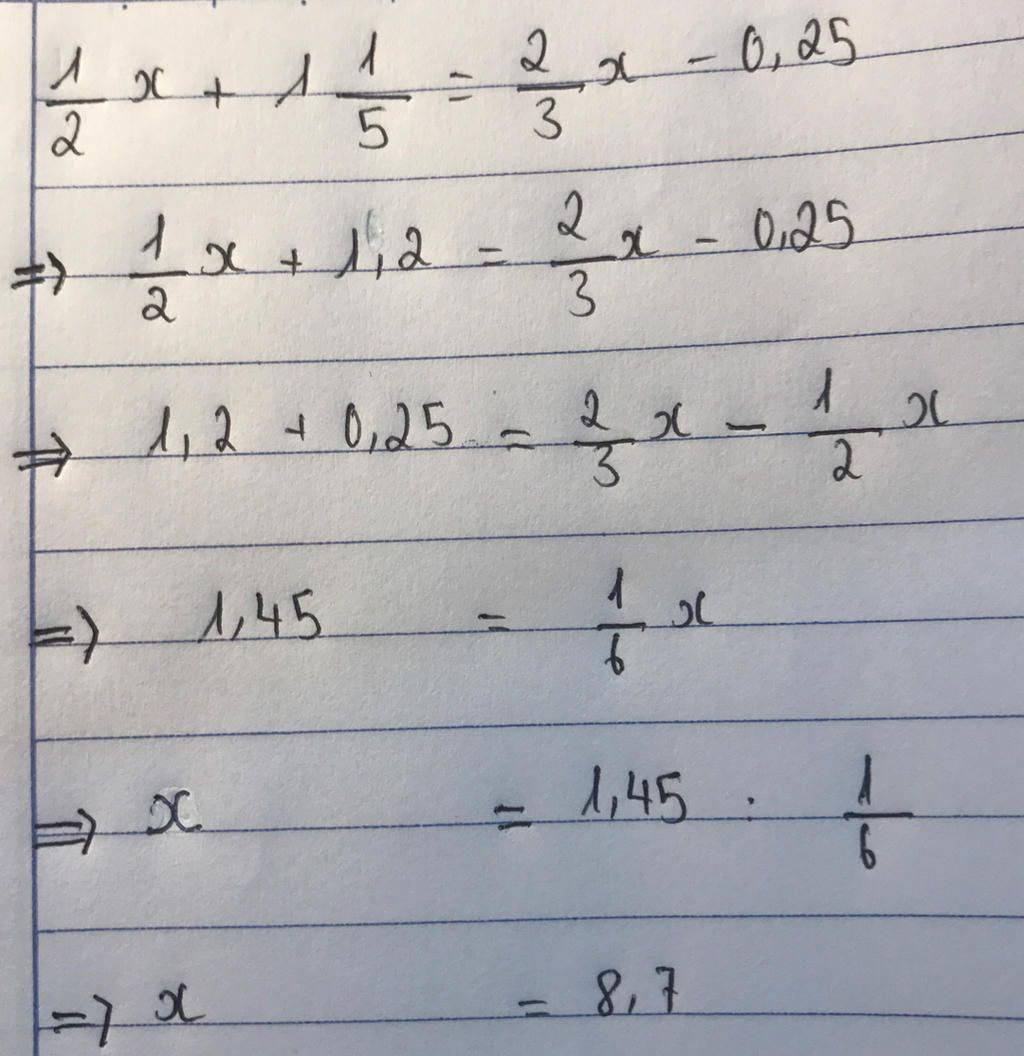 1/2 x + 1 1/5 = 2/3 x - 0,25
=> 1/2 x + 1,2 = 2/3 x - 0,25
=> 1,2 + 0,25 = 2/3 x - 1/2 x
=> 1,45 = 1/6 x
=> x = 1,45 : 1/6
=> x = 8,7